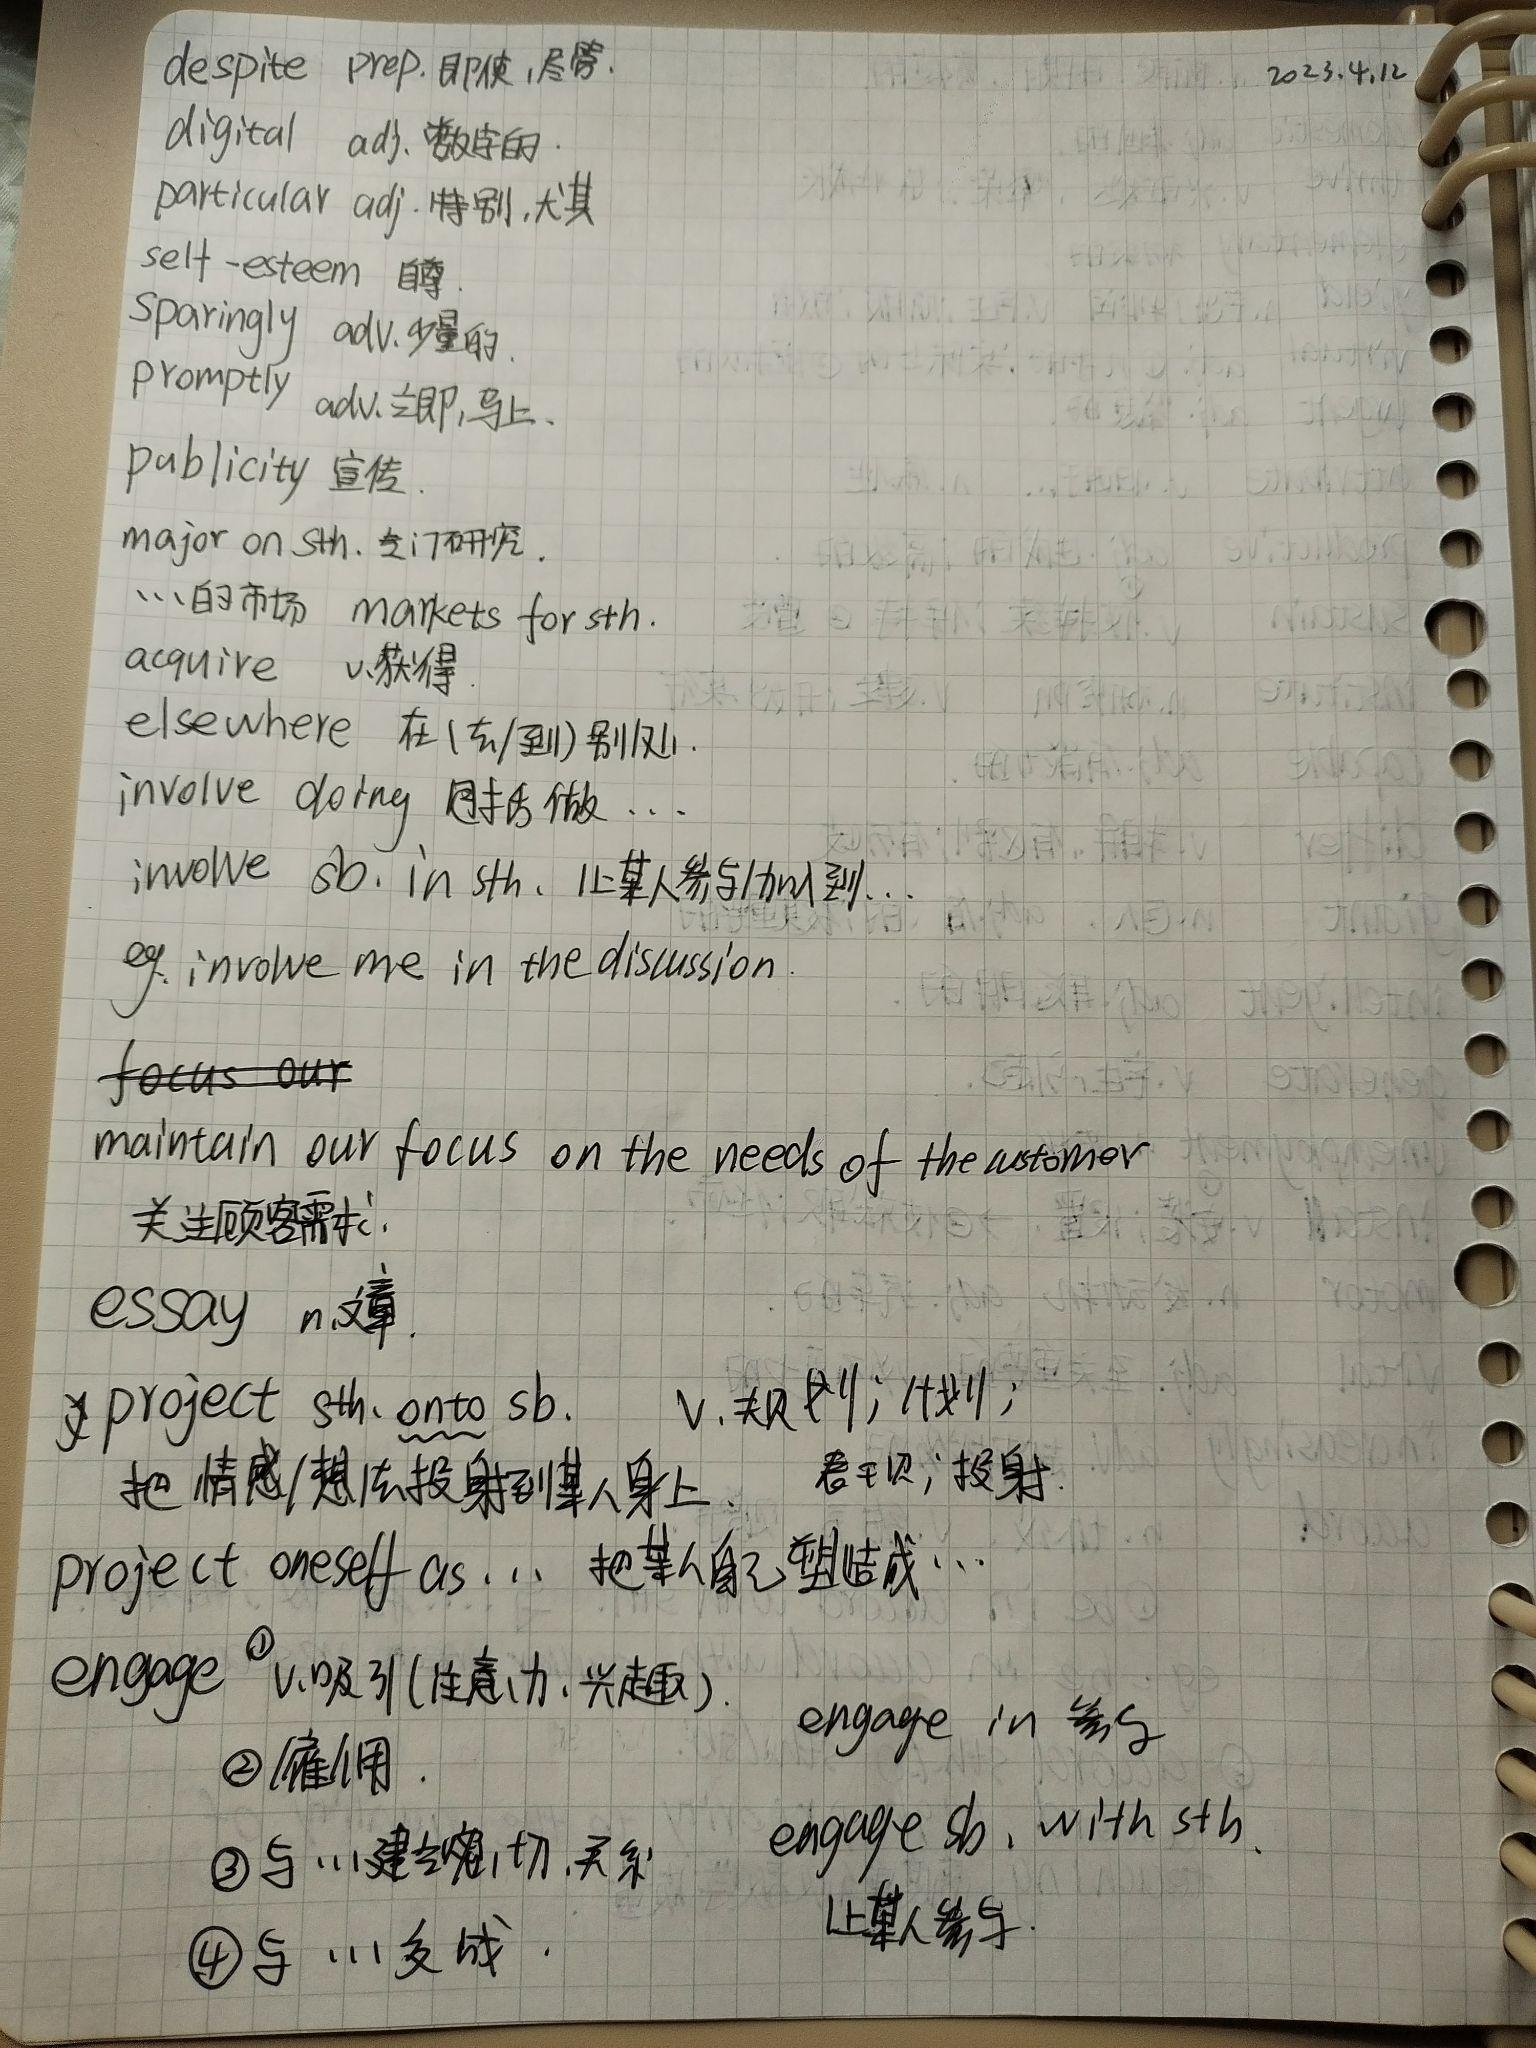 2023.4.12
despite prep. 即使,尽管.
digital adj. 数字的.
particular adj. 特别,尤其
self-esteem 自尊.
sparingly adv. 少量的.
promptly adv. 立即,马上.
publicity 宣传.
major on sth. 专门研究.
...的市场 markets for sth.
acquire v.获得.
elsewhere 在(去/到)别处.
involve doing 包括做...
involve sb. in sth. 让某人参与/加入到...
eg. involve me in the discussion.
focus our
maintain our focus on the needs of the customer
关注顾客需求.
essay n.文章.
project sth. onto sb. v.规划;计划;
把情感/想法投射到某人身上. 表现;投射.
project oneself as... 把某人自己塑造成...
engage ①v.吸引(注意力、兴趣).
engage in 参与
②雇佣.
③与...建立密切关系
engage sb. with sth.
让某人参与.
④与...交战.